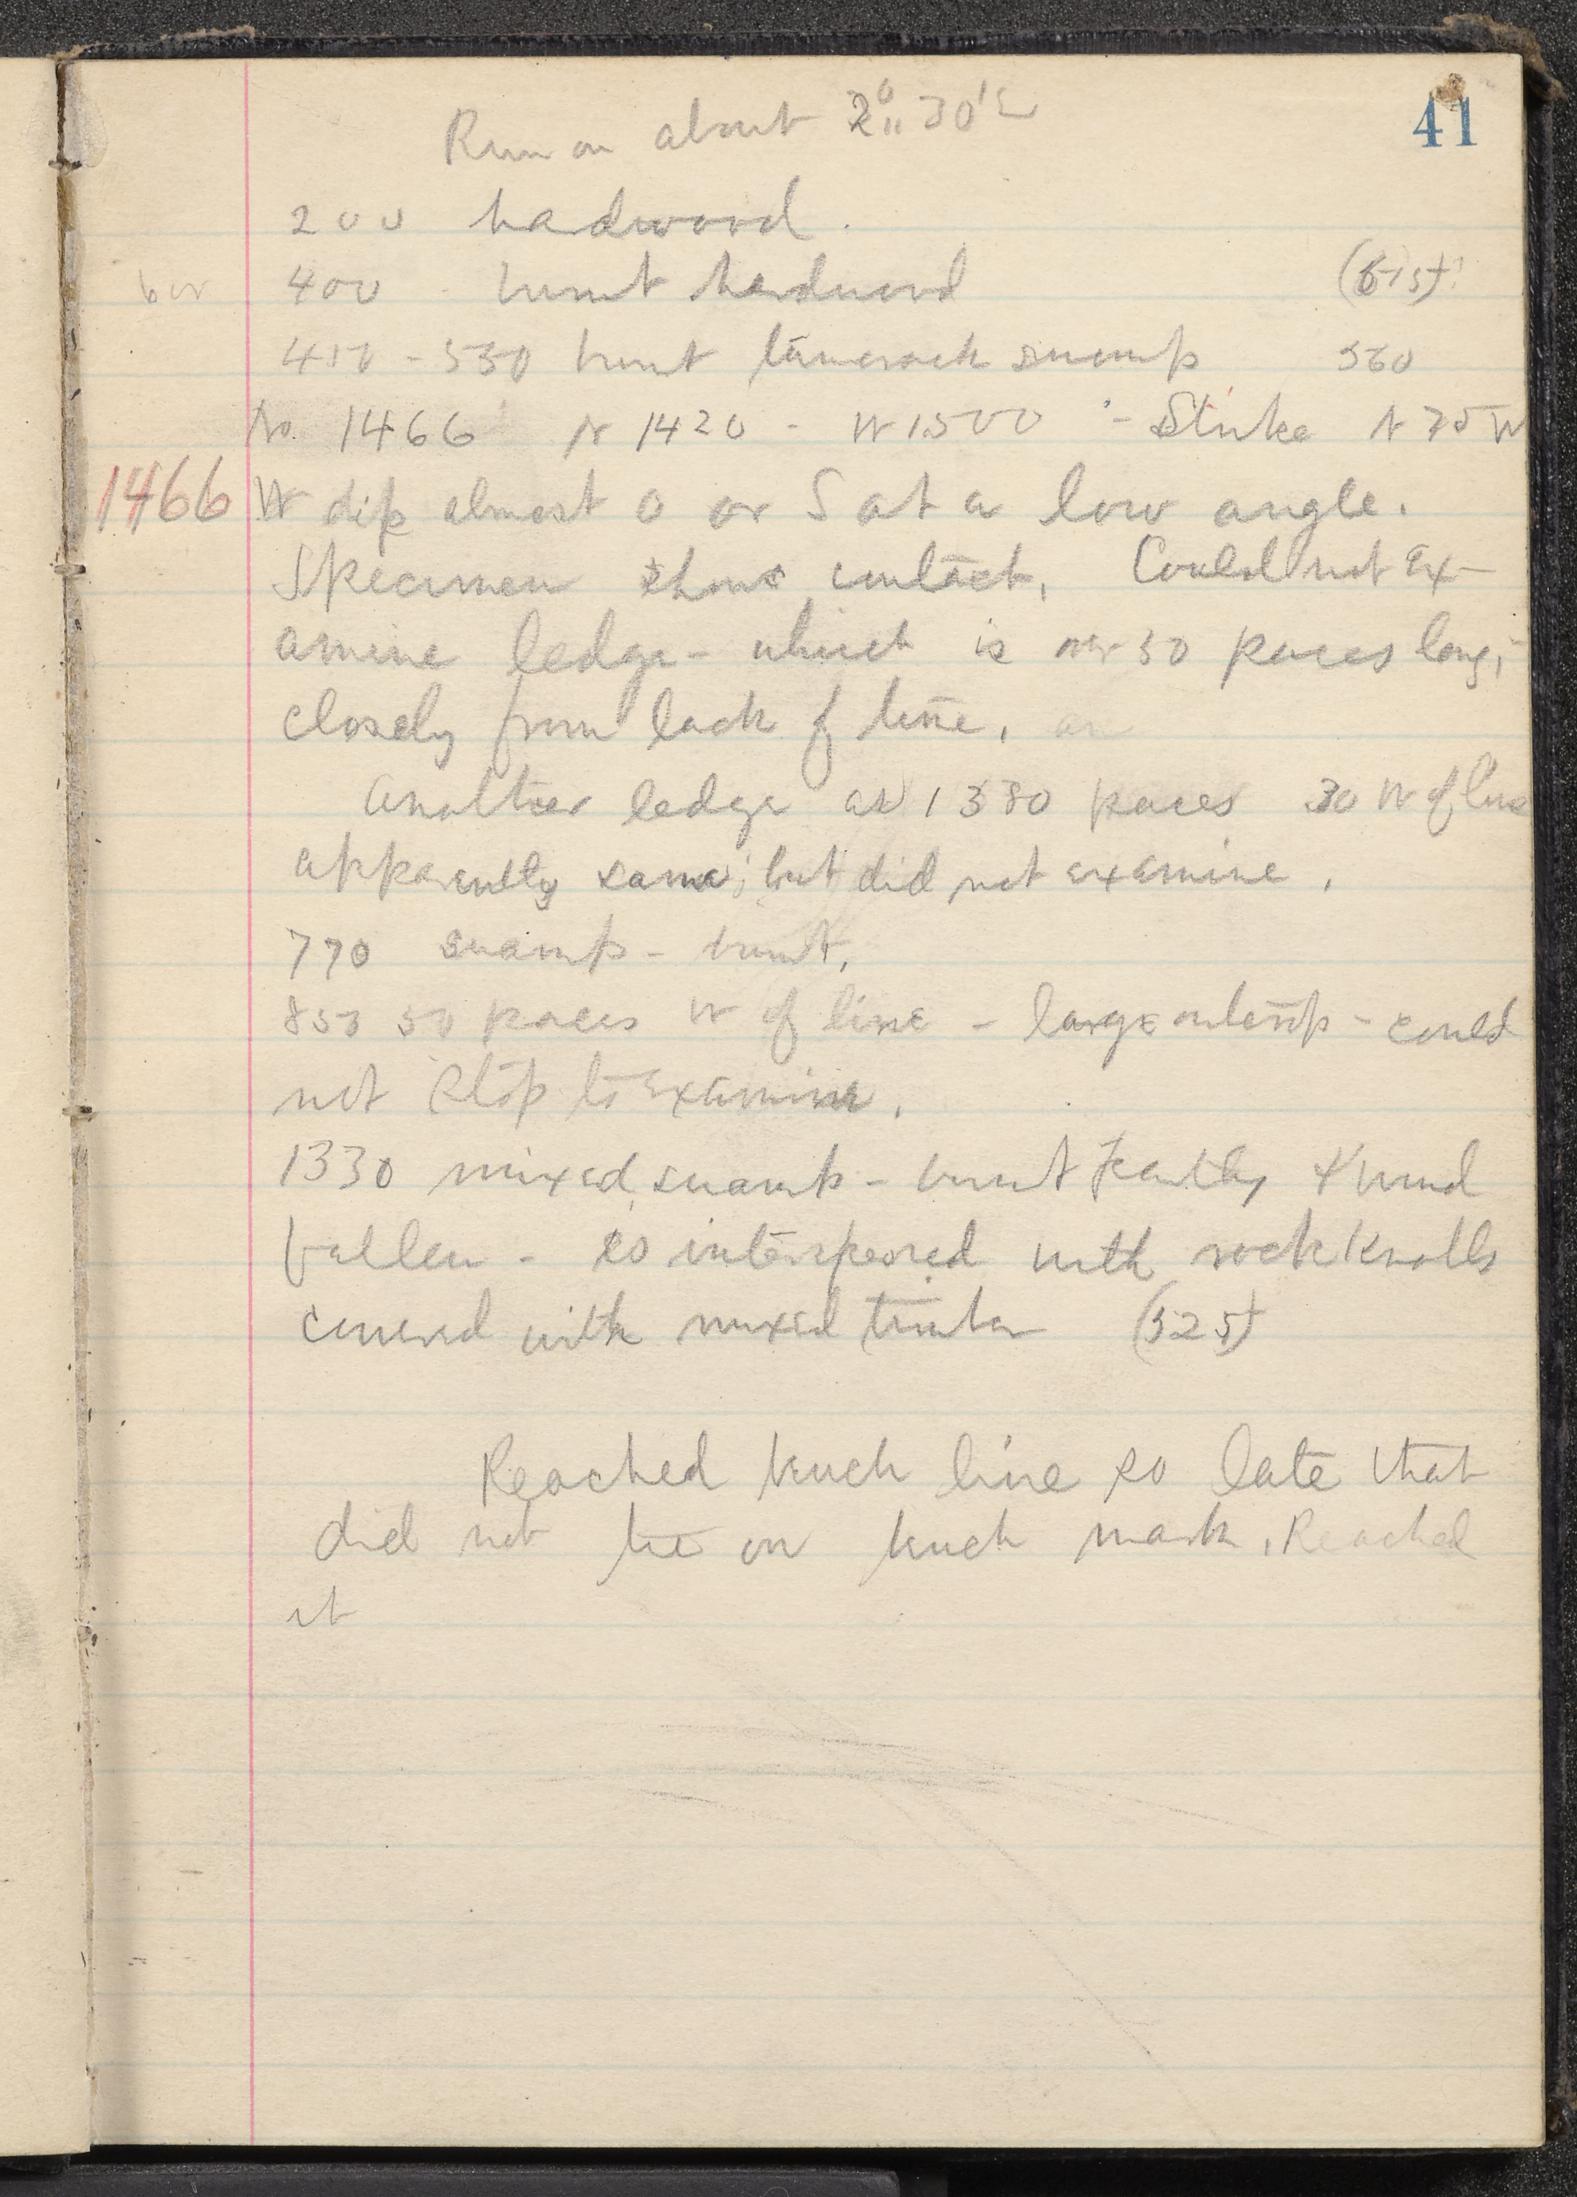 41
Run on about 2° 30' E
200 hardwood.
400 - burnt hardwood
450 - 530 burnt tamarack swamp 560
No. 1466 N 1420 - W 1500 - Strike N 75 W
1466 W dip almost 0 or S at a low angle.
Specimen shows contact. Could not ex-
amine ledge - which is over 50 paces long,
closely from lack of time.
Another ledge at 1380 paces 30 W of line
apparently same; but did not examine.
770 swamp - burnt.
850 50 paces W of line - large outcrop - could
not stop to examine.
1330 mixed swamp - burnt partly & wind
fallen - so interspersed with rock knolls
covered with mixed timber (525)
Reached line so late that
did not tie on mark. Reached
it